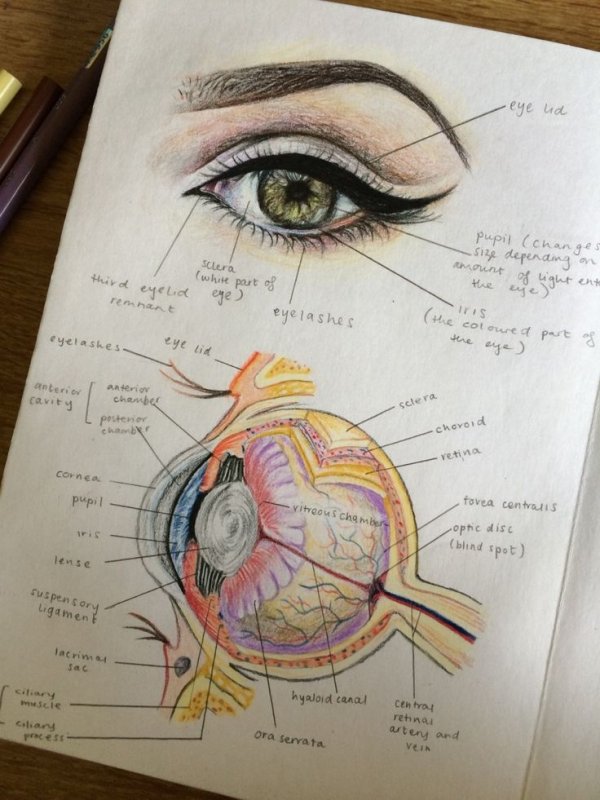 eye lid
pupil (changes
size depending on
amount of light ent
the eye)
iris
(the coloured part of
the eye)
sclera
(white part of
eye)
third eyelid
remnant
eyelashes
eyelashes
eye lid
anterior
cavity
anterior
chamber
posterior
chamber
cornea
pupil
iris
lense
suspensory
ligament
lacrimal
sac
ciliary
muscle
ciliary
process
sclera
choroid
retina
vitreous chamber
fovea centralis
optic disc
(blind spot)
hyaloid canal
ora serrata
central
retinal
artery and
vein